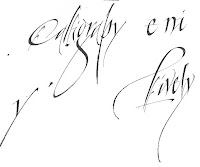 Caligraphy e ni
lively
y